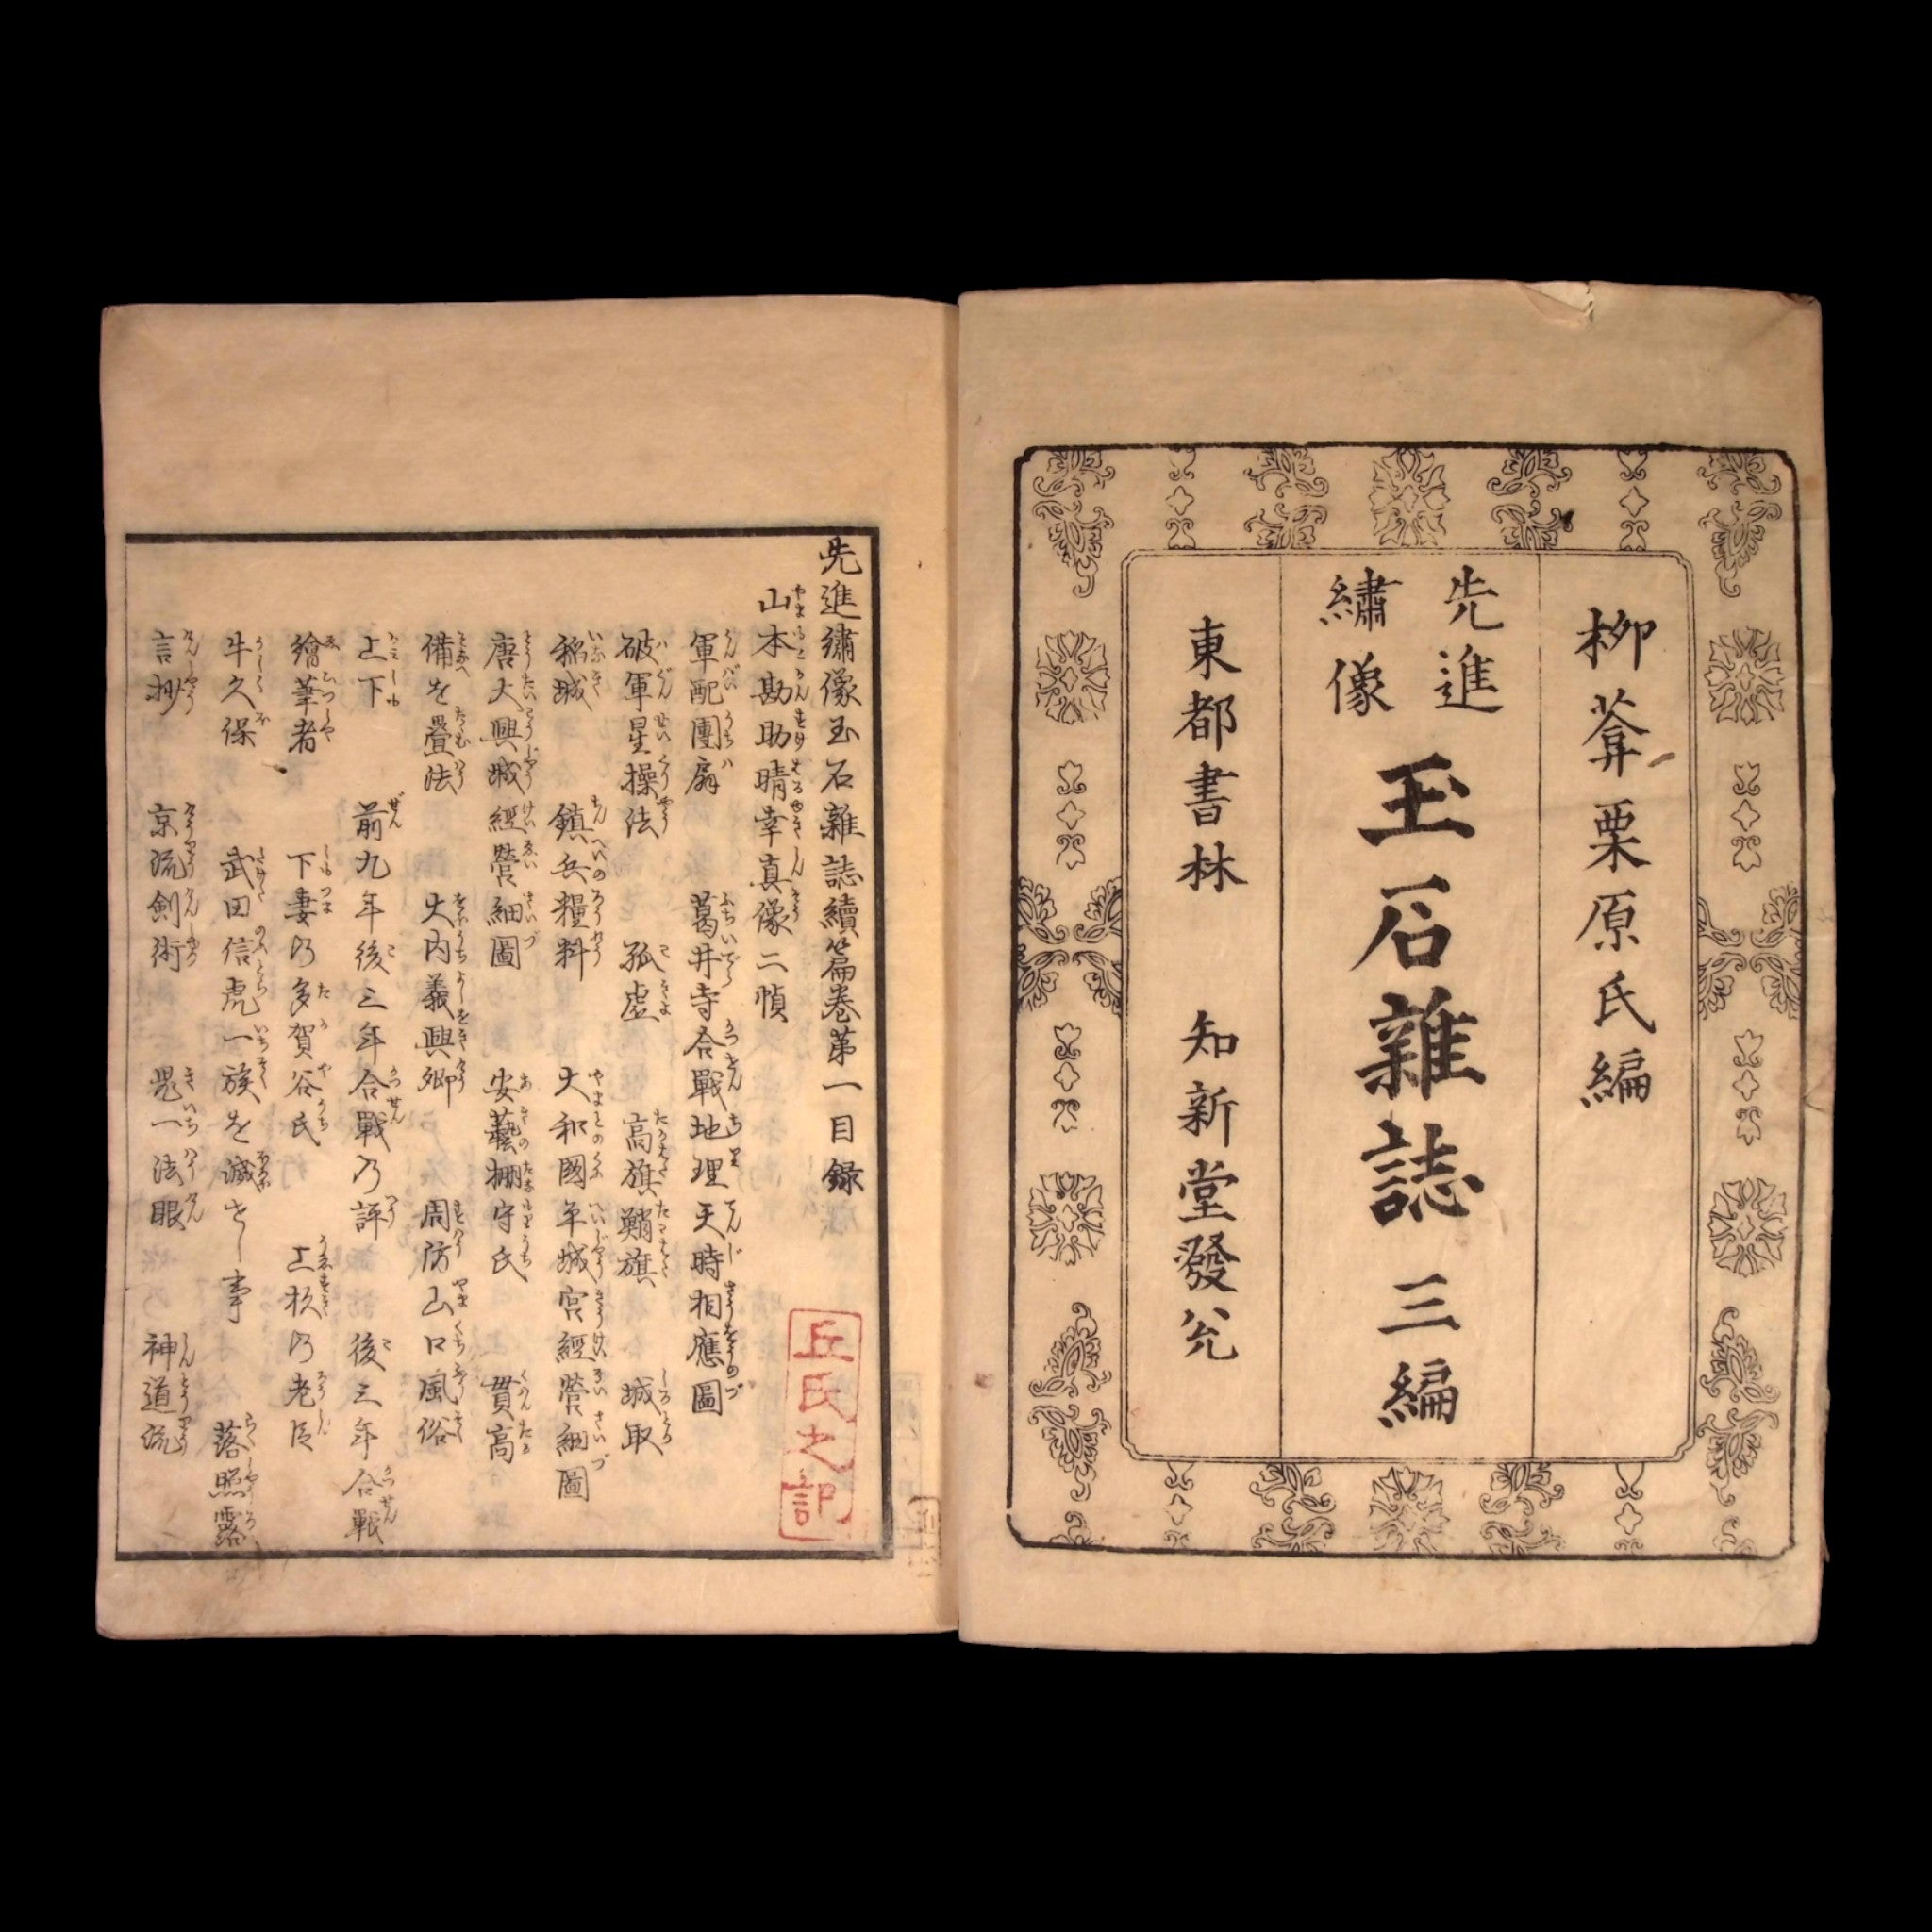 柳葊栗原氏編
先進
繡像
玉石雜誌 三編
東都書林 知新堂發兌
先進繡像玉石雜誌續篇卷第一目録
山本勘助晴幸真像二幀
軍配團扇 葛井寺合戰地理天時相應圖
破軍星操法 孤虚 高旗鞘旗 城取
稲城 鎮兵糧料 大和國平城宮經營細圖
唐大興城經營細圖 安藝棚守氏 貫高
備を疊法 大内義興卿 周防山口風俗
上下 前九年後三年合戰乃評 後三年合戰
繪筆者 下妻乃多賀谷氏 上杦乃老臣
牛久保 武田信虎一族を滅せし事 落照露
言抄 京流劍術 鬼一法眼 神道流
丘氏之記